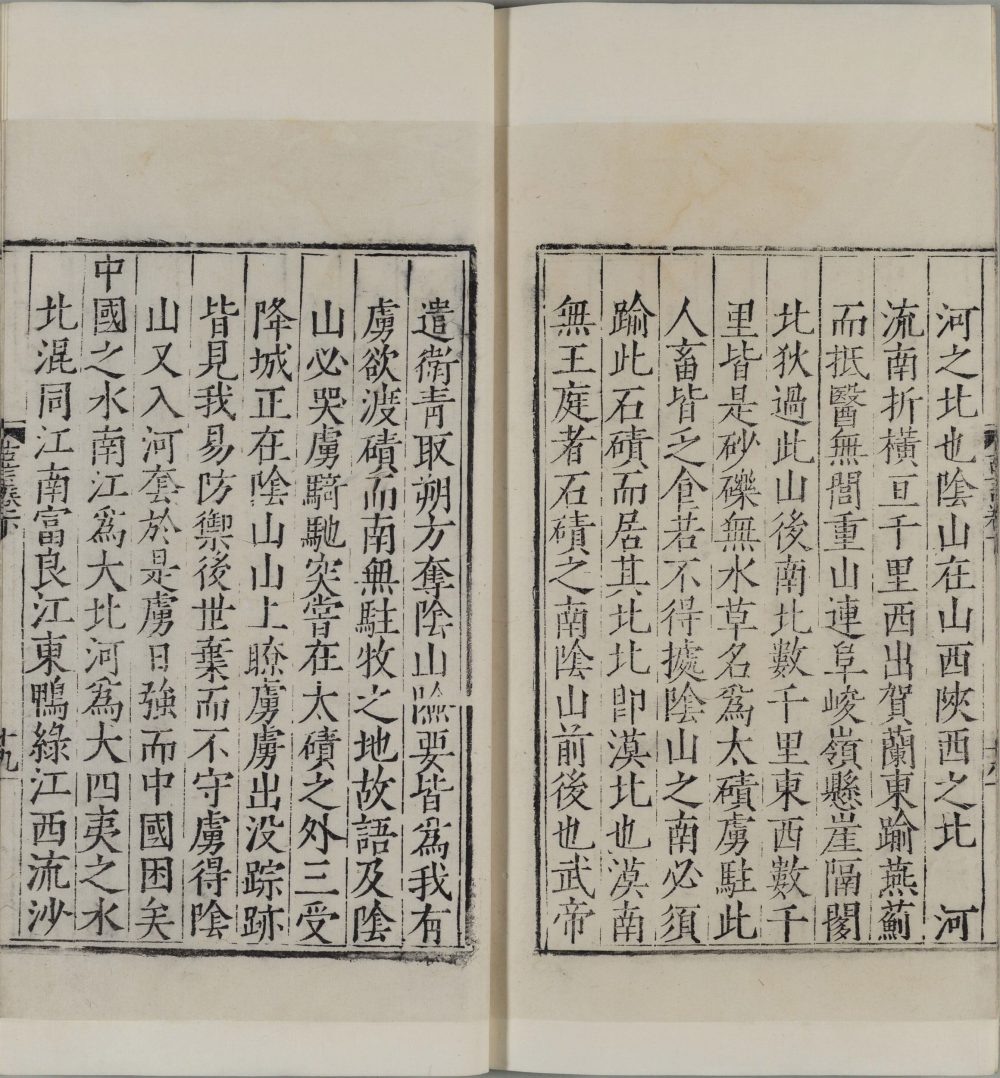 河之北也陰山在山西陝西之北 河
流南折橫亘千里西出賀蘭東踰燕薊
而抵醫無閭重山連阜峻嶺懸崖隔閡
北狄過此山後南北數千里東西數千
里皆是砂磧無水草名爲太磧虜駐此
人畜皆乏食若不得據陰山之南必須
踰此石磧而居其北北即漠北也漠南
無王庭者石磧之南陰山前後也武帝
遣衛青取朔方奪陰山險要皆爲我有
虜欲渡磧而南無駐牧之地故語及陰
山必哭虜騎馳突嘗在太磧之外三受
降城正在陰山山上瞭虜虜出沒踪跡
皆見我易防禦後世棄而不守虜得陰
山又入河套於是虜日強而中國困矣
中國之水南江爲大北河爲大四夷之水
北混同江南富良江東鴨綠江西流沙
十九